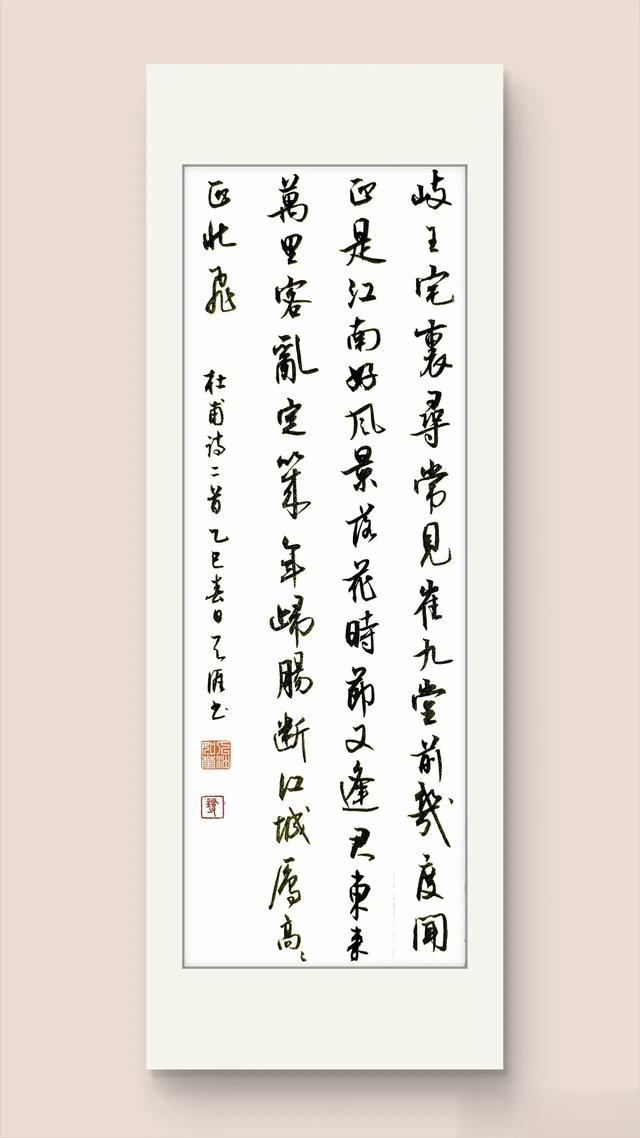 岐王宅裏尋常見崔九堂前幾度聞
正是江南好风景落花時節又逢君東来
萬里客亂定幾年歸腸斷江城鴈高〻
正北飛 杜甫詩二首乙巳春日天涯书